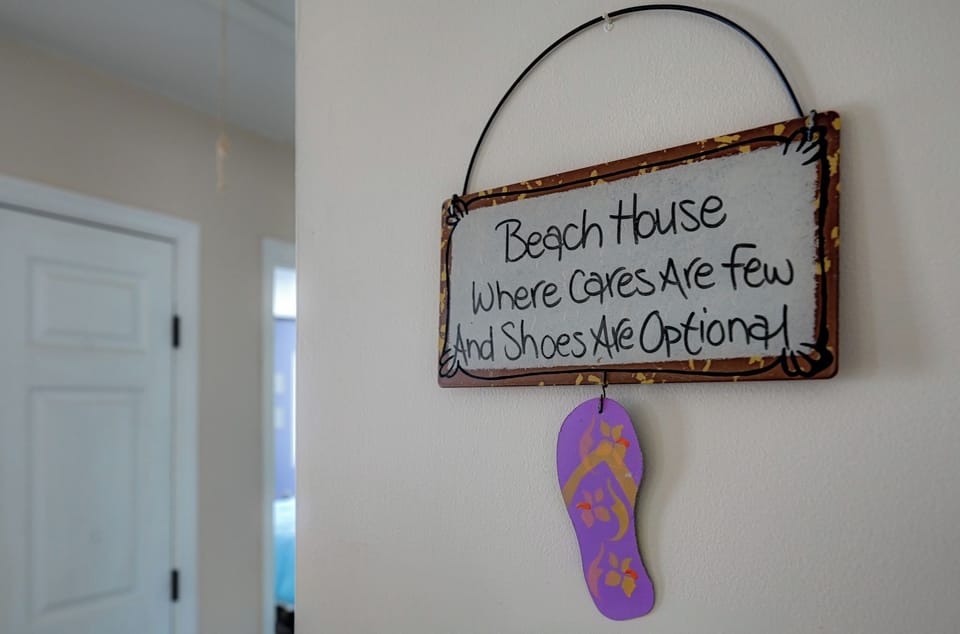 Beach House
Where Cares Are Few
And Shoes Are Optional